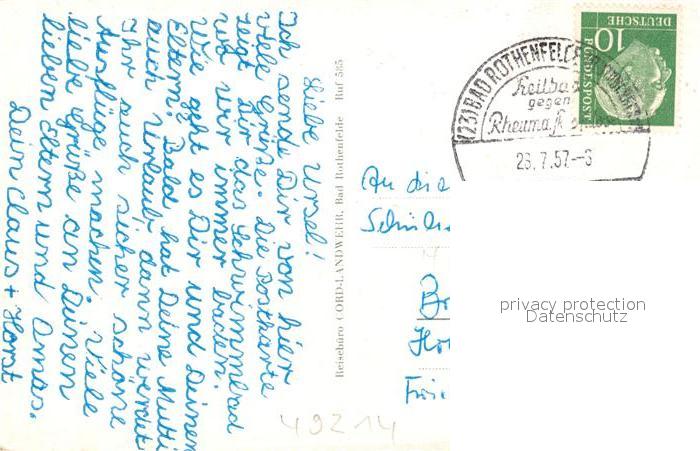 Liebe Ursel!
Ich sende Dir von hier
viele Grüße. Die Postkarte
zeigt Dir das Schwimmbad
wo wir immer baden.
Wie geht es Dir und Deinen
Eltern? Bald hat Deine Mutti
auch Urlaub, dann werdet
Ihr euch sicher schöne
Ausflüge machen. Viele
liebe Grüße an Deinen
lieben Eltern und Omas.
Dein Claus + Horst
Reisebüro CORD-LANDWEHR, Bad Rothenfelde Ruf 585
An die
49Z14
(23) BAD ROTHENFELDE
Heilbad
gegen
Rheuma,
23.7.57.-8
10
DEUTSCHE
BUNDESPOST
privacy protection
Datenschutz